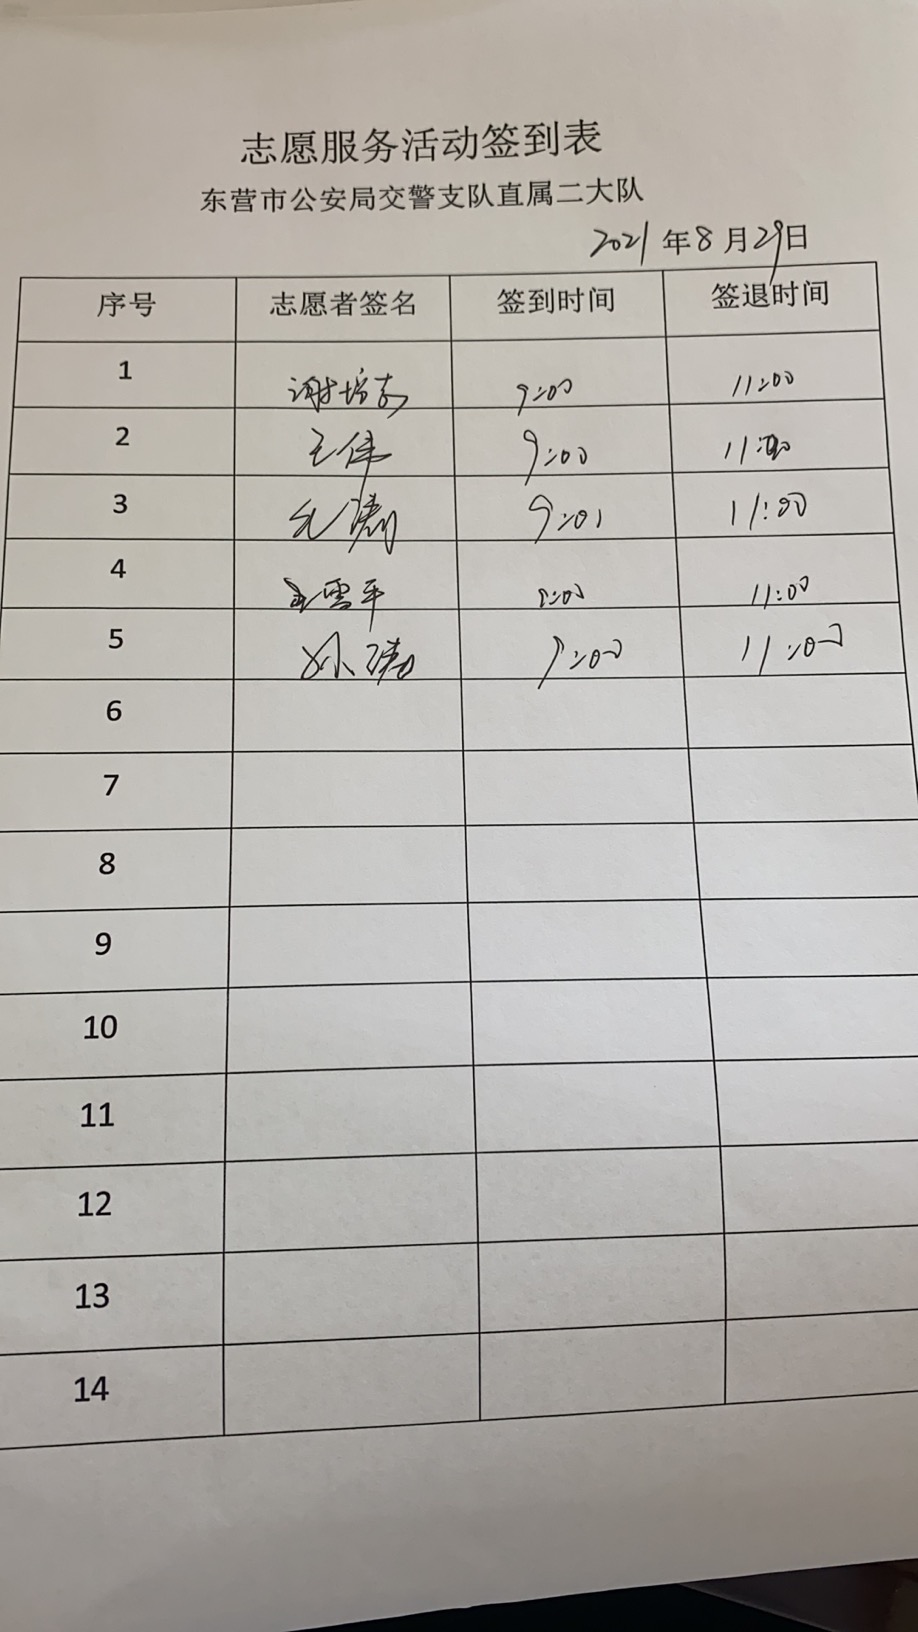 志愿服务活动签到表
东营市公安局交警支队直属二大队
2021年8月29日
序号 志愿者签名 签到时间 签退时间
1 谢培志 9:00 11:00
2 王伟 9:00 11:00
3 9:01 11:00
4 王雪平 11:00
5 孙涛 9:00 11:00
6
7
8
9
10
11
12
13
14